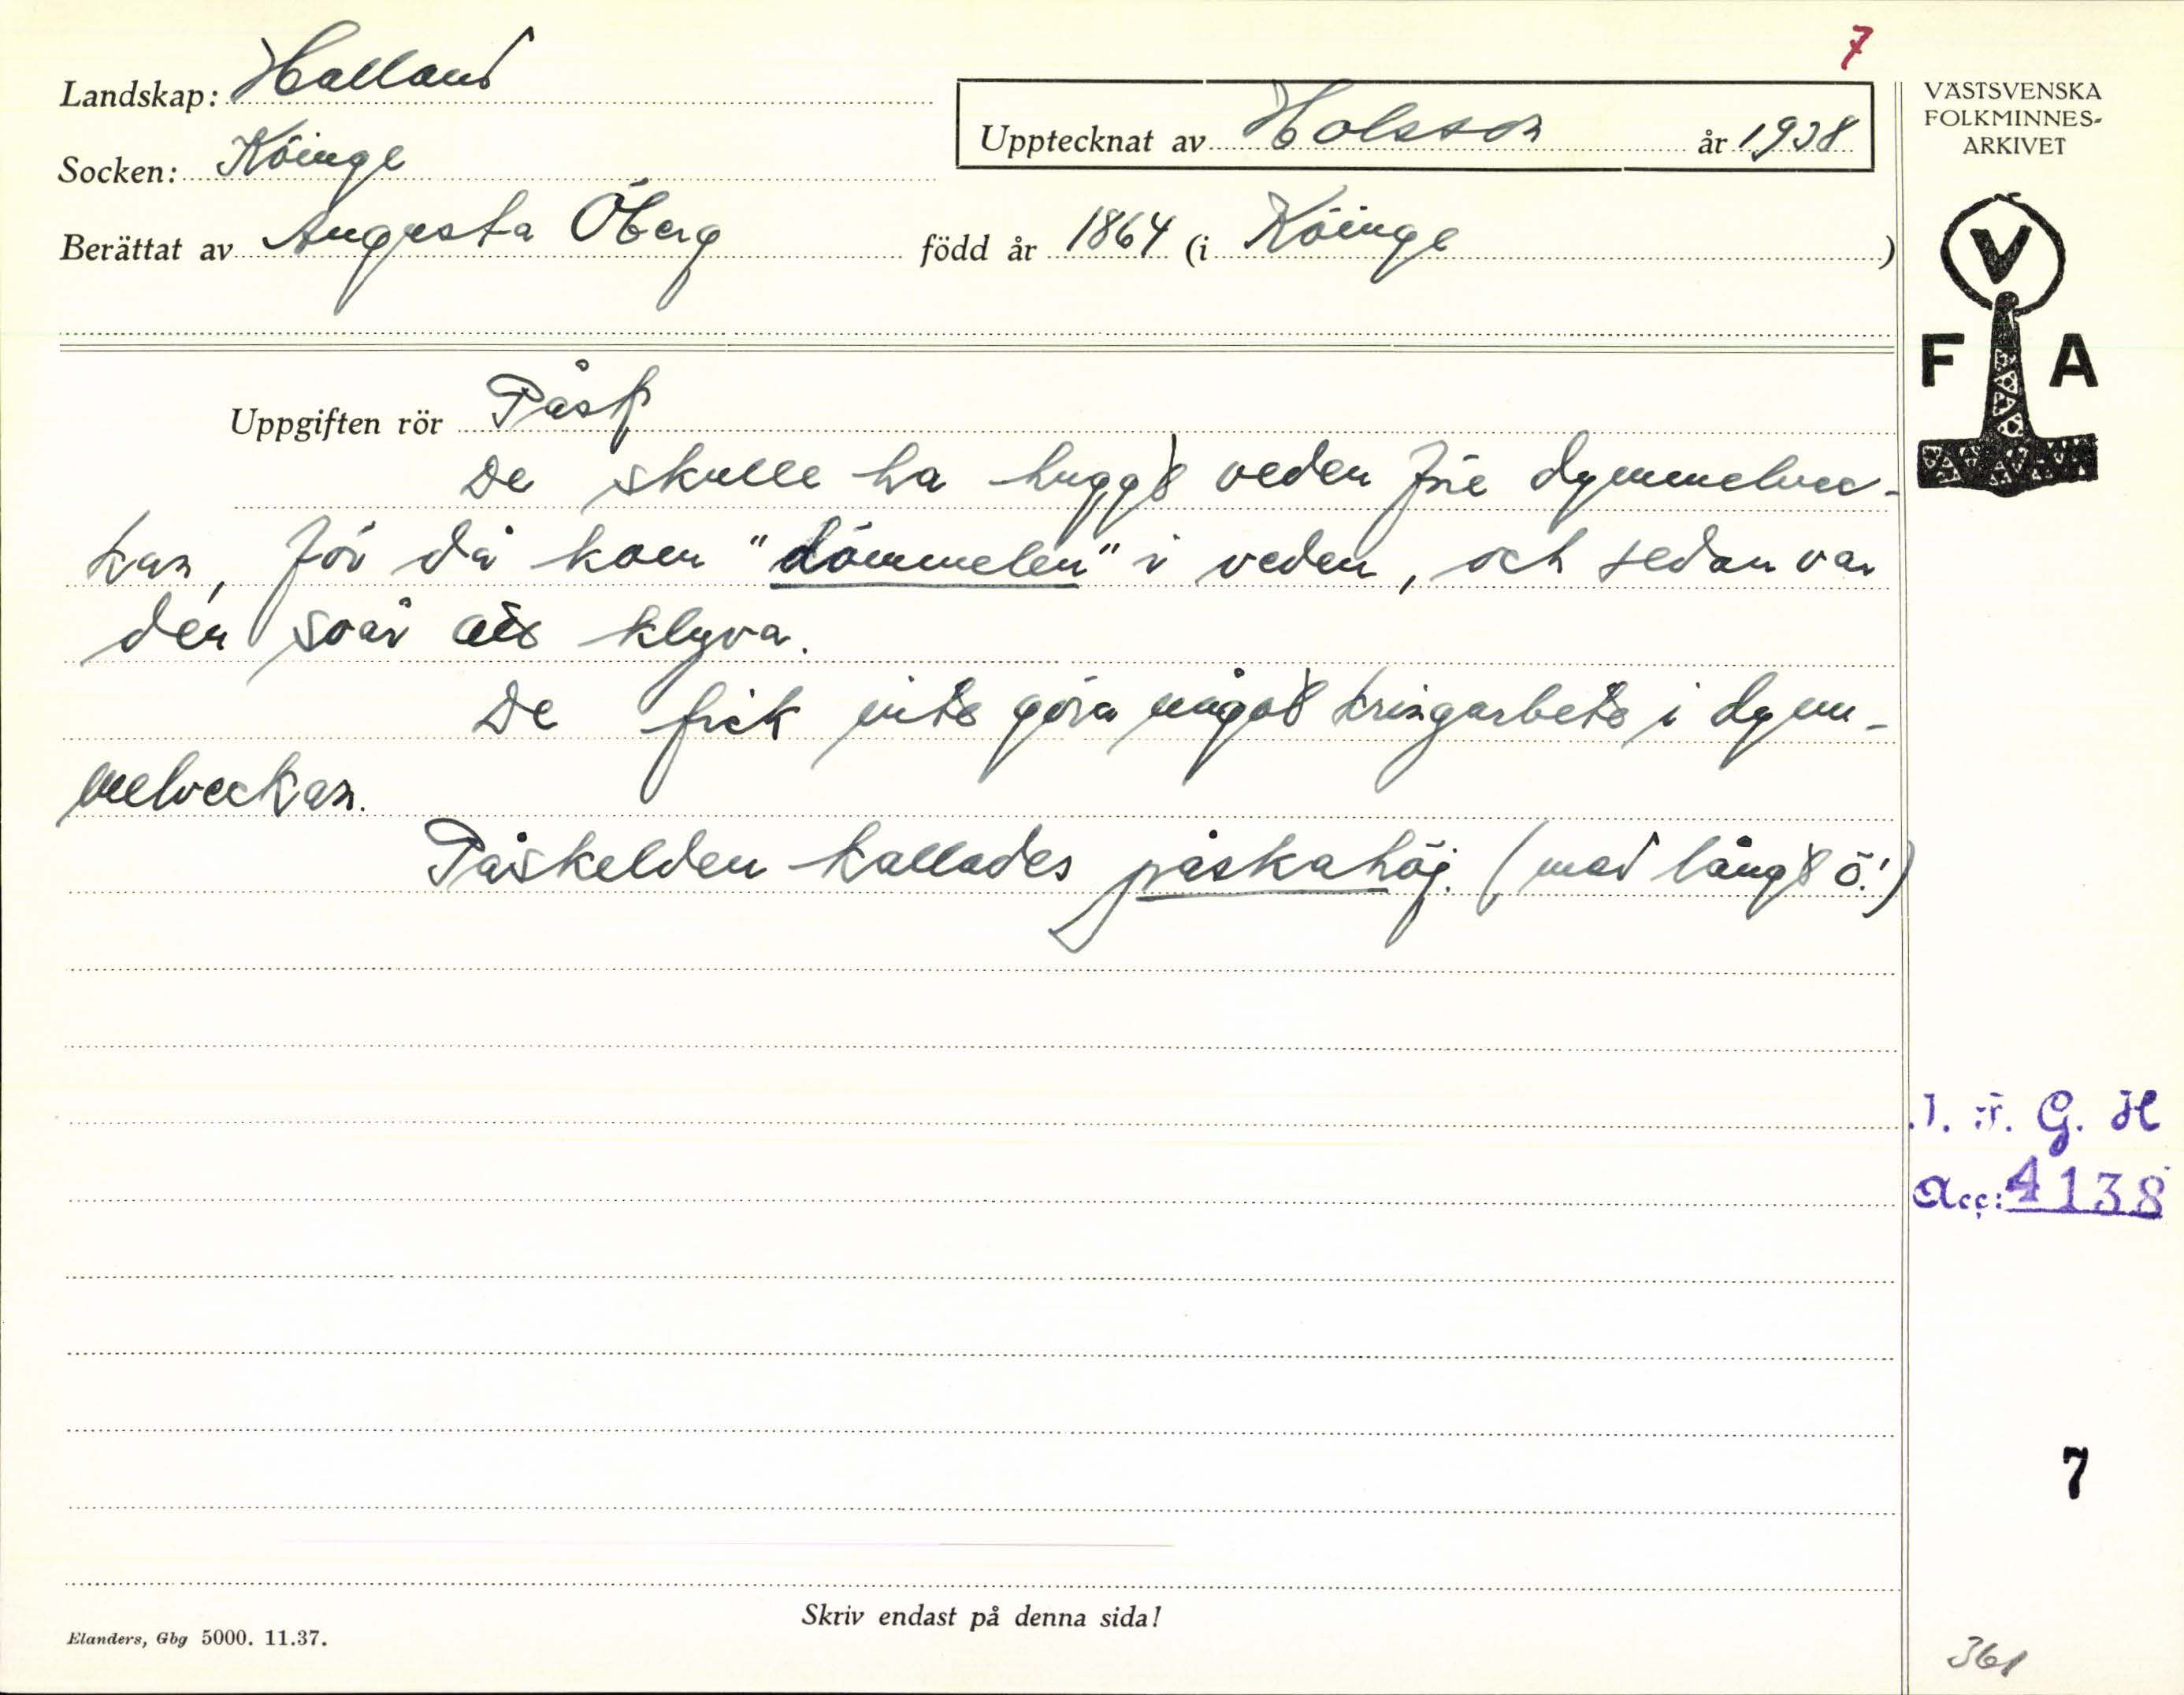 7
Landskap: Halland
VÄSTSVENSKA
FOLKMINNES-
ARKIVET
Upptecknat av Holsson år 1938
Socken: Köinge
Berättat av Augusta Öberg född år 1864 (i Köinge)
V
F A
Uppgiften rör Påsk
De skulle ha huggt veden före dymmelvec-
kan, för då kom "dömmelen" i veden, och sedan var
den svår att klyva.
De fick inte göra något kringarbete i dym-
melveckan.
Påskelden kallades påskahög. (med långt ö!)
I. F. G. H
Acc: 4138
7
Skriv endast på denna sida!
Elanders, Gbg 5000. 11.37.
361